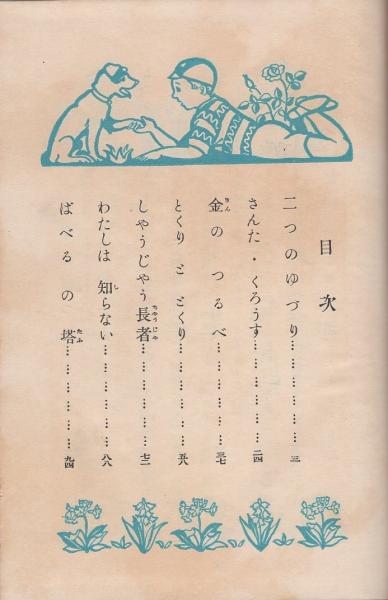 目次
二つのゆづり………………三
さんた・くろうす………………二四
金のつるべ………………三七
とくりととくり………………五八
しやうじやう長者………………七二
わたしは知らない………………八八
ばべるの塔………………九四